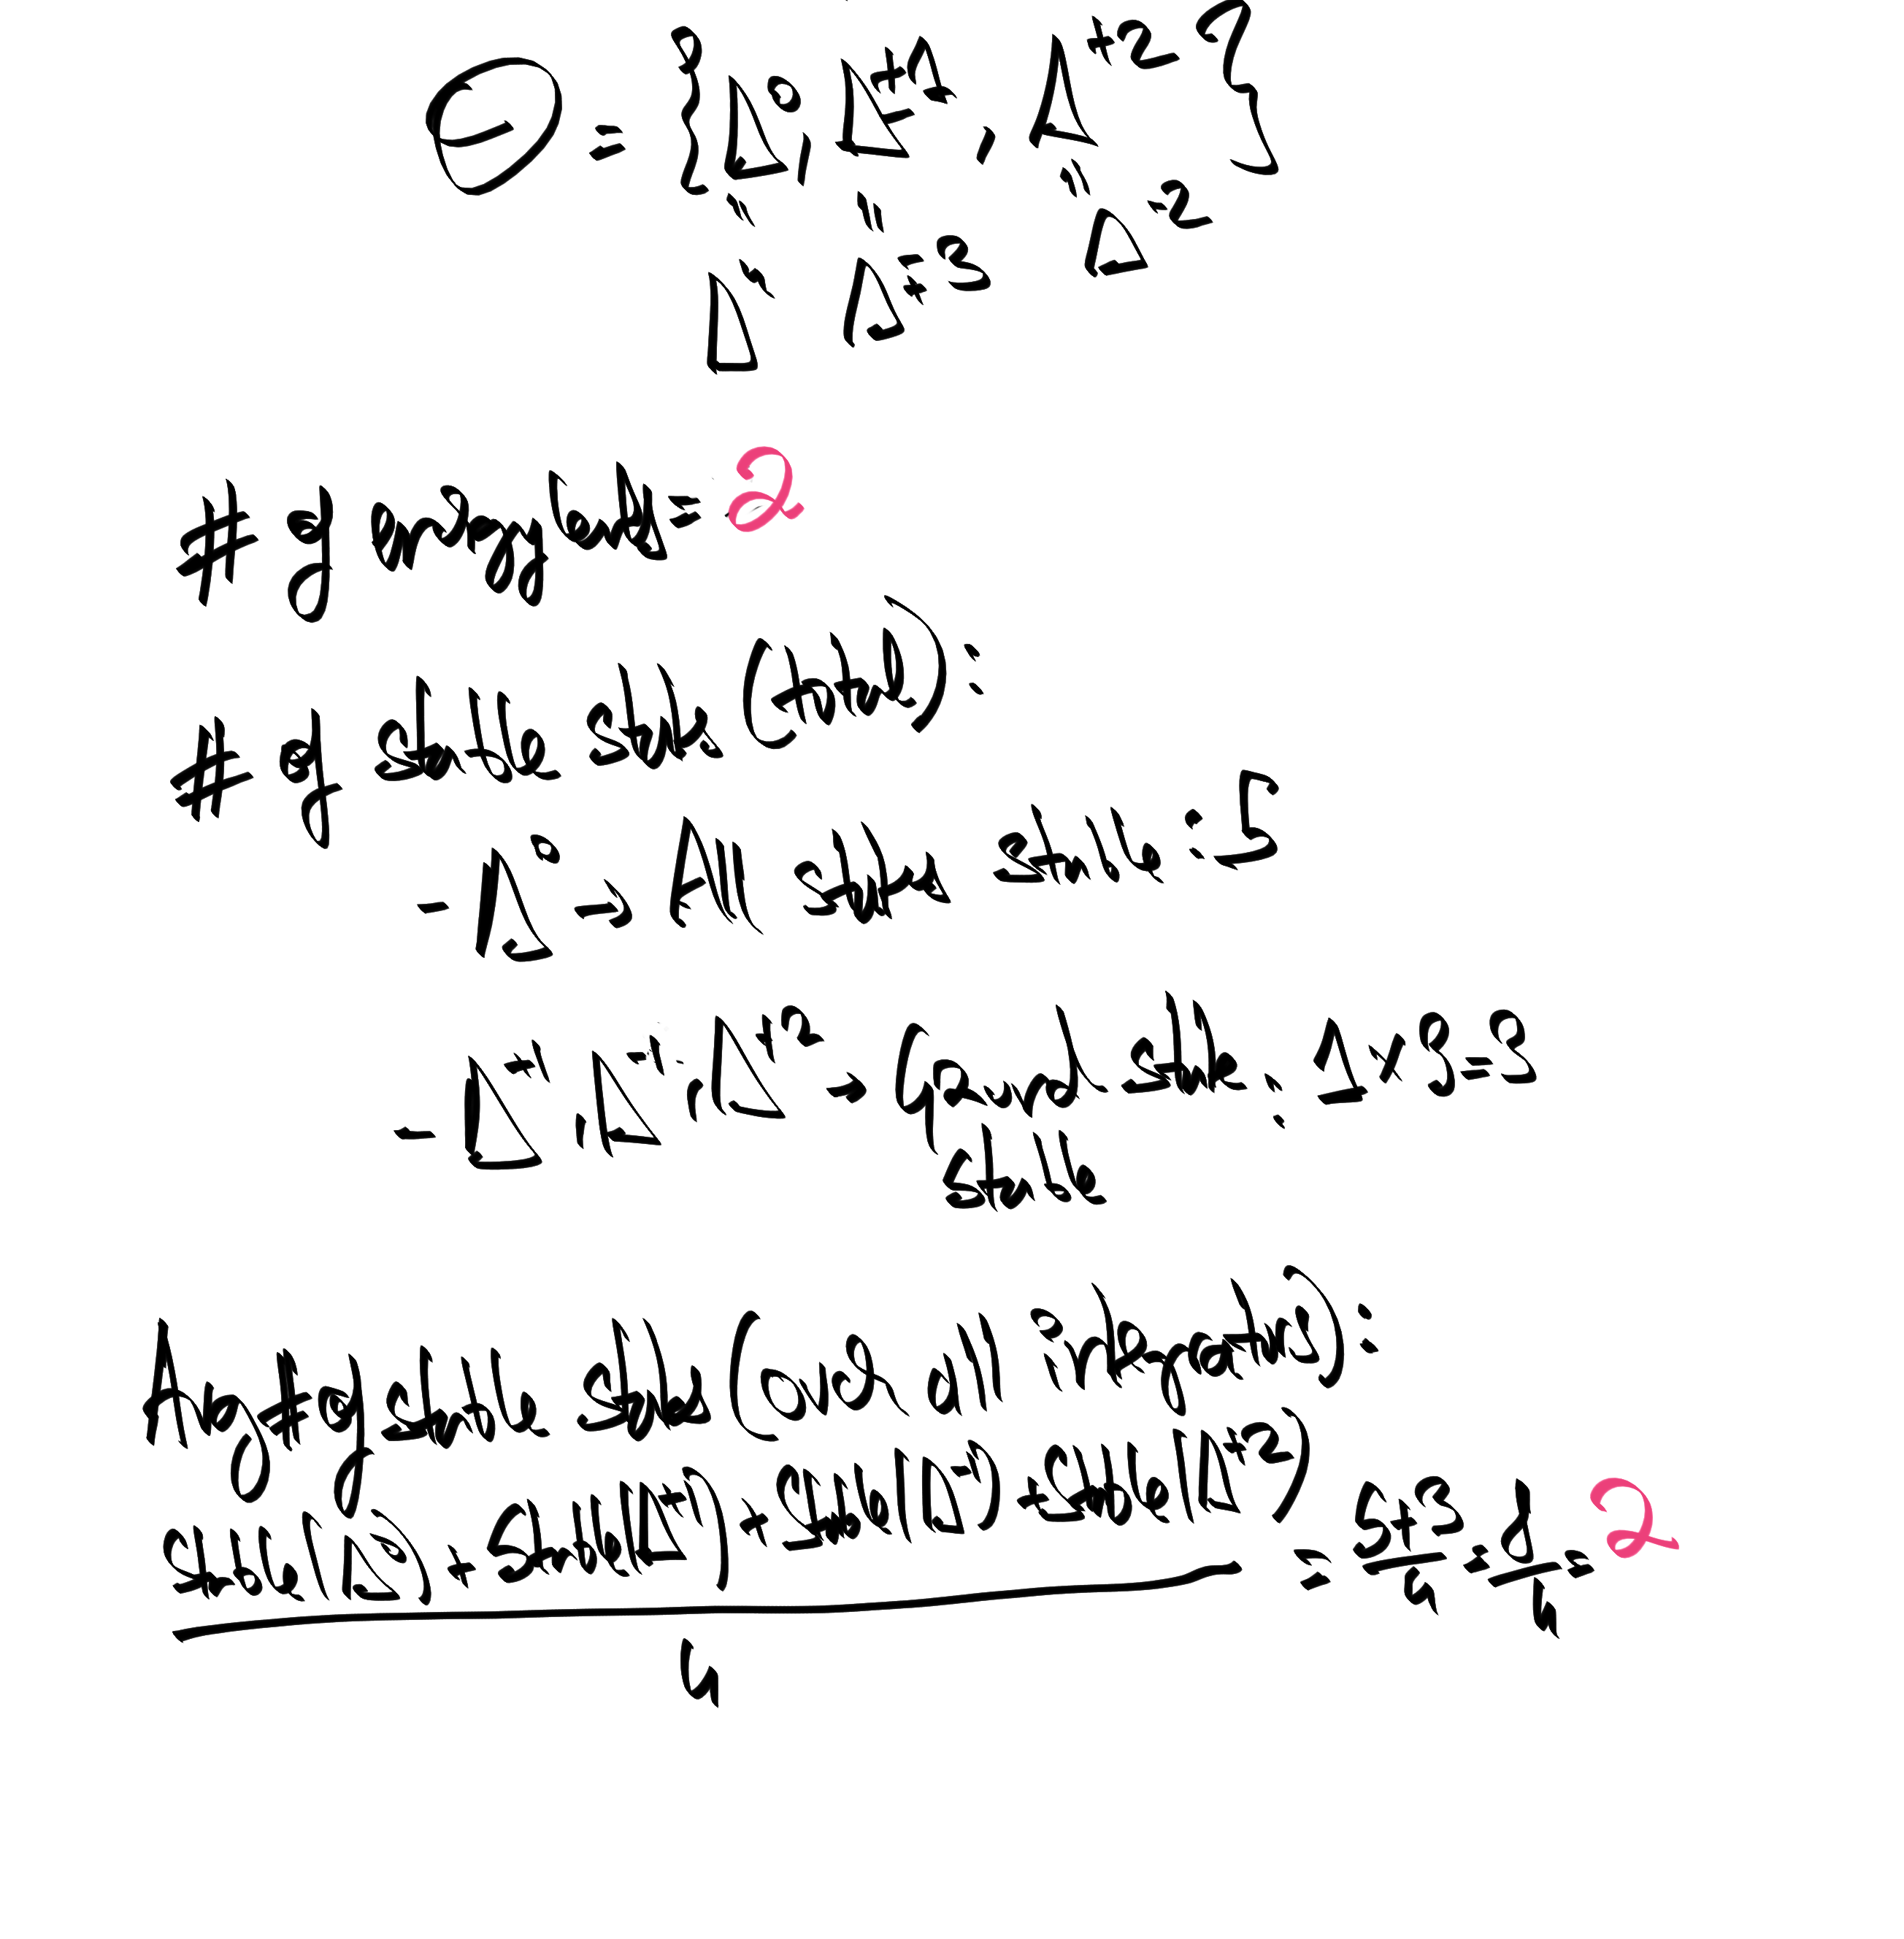 Θ = { Δ⁰, Δ^±1, Δ^+2 }
" " "
Δ⁴ Δ^±3 Δ^-2
# of energy levels = 2
# of stable states (total) :
- Δ⁰ → All states stable : 5
- Δ^+1, Δ^-1, Δ^+2 → Ground state : 1×3=3
stable
Avg # of stable states (over all ) :
stable(Δ⁰) + stable(Δ^+1) + stable(Δ^-1) + stable(Δ^+2) = 5+3 = 8 = 2
4 4 4